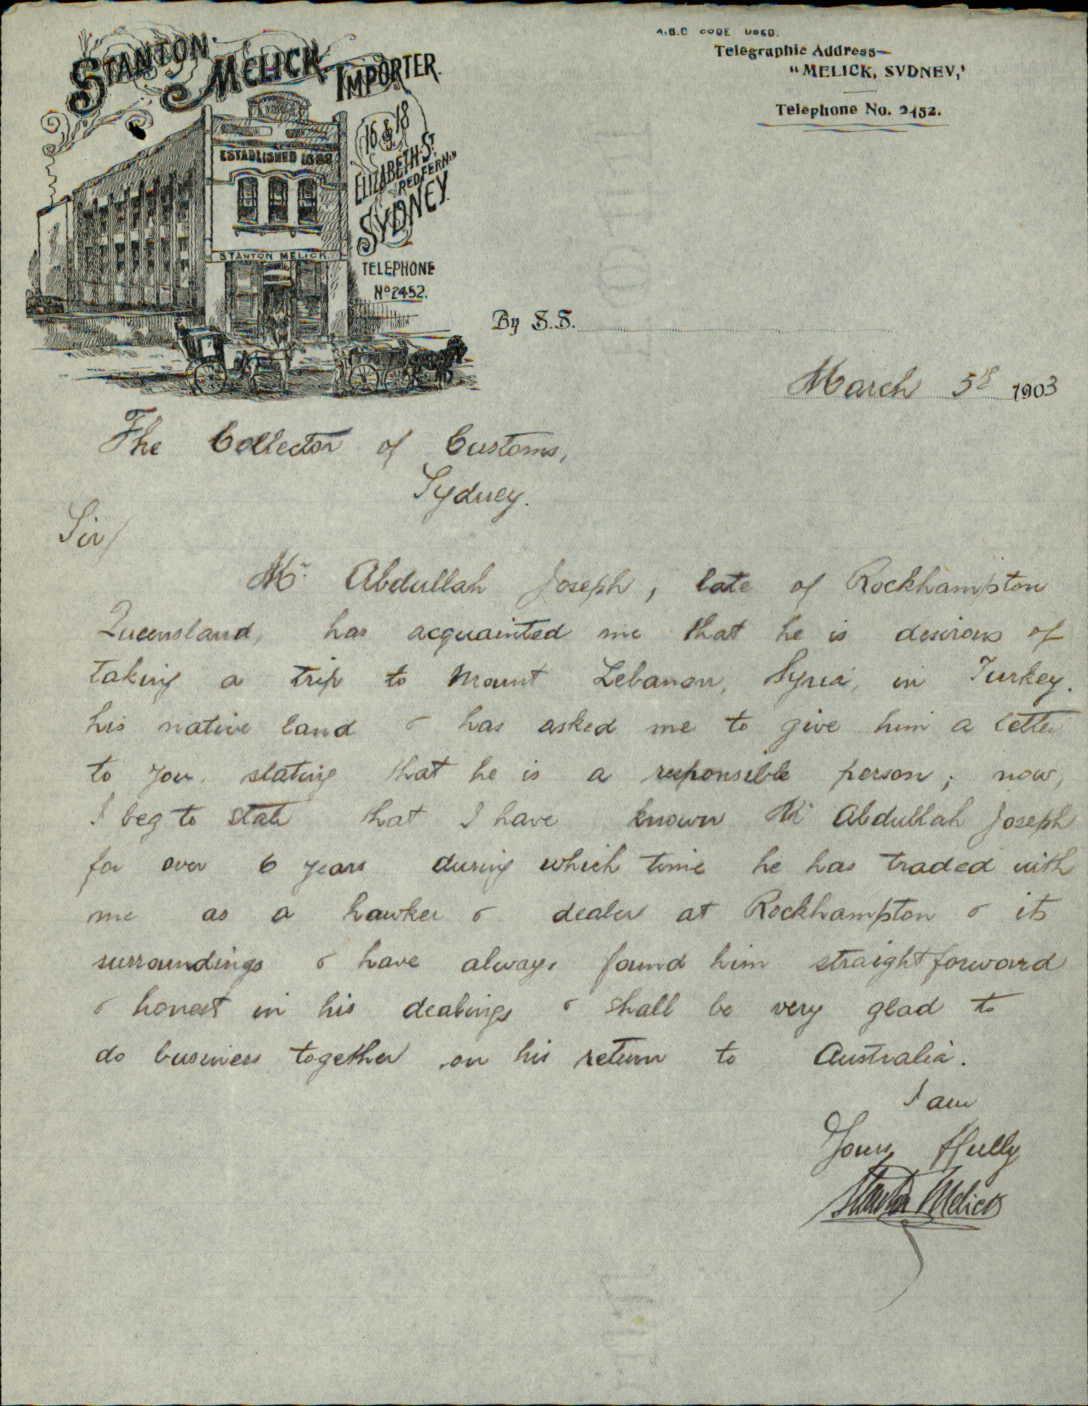 STANTON MELICK IMPORTER.
16 & 18
ELIZABETH ST.
REDFERN
SYDNEY.
TELEPHONE
No 2452.
ESTABLISHED 1888
STANTON MELICK
A.B.C CODE USED.
Telegraphic Address—
"MELICK, SYDNEY,"
Telephone No. 2452.
By S.S.
March 5th 1903
The Collector of Customs,
Sydney.
Sir/
Mr. Abdullah Joseph, late of Rockhampton
Queensland, has acquainted me that he is desirous of
taking a trip to Mount Lebanon, Syria, in Turkey.
his native land & has asked me to give him a letter
to you, stating that he is a responsible person; now,
I beg to state that I have known Mr Abdullah Joseph
for over 6 years during which time he has traded with
me as a hawker & dealer at Rockhampton & its
surroundings & have always found him straightforward
& honest in his dealings & shall be very glad to
do business together on his return to Australia.
I am
Yours ffully
Stanton Melick